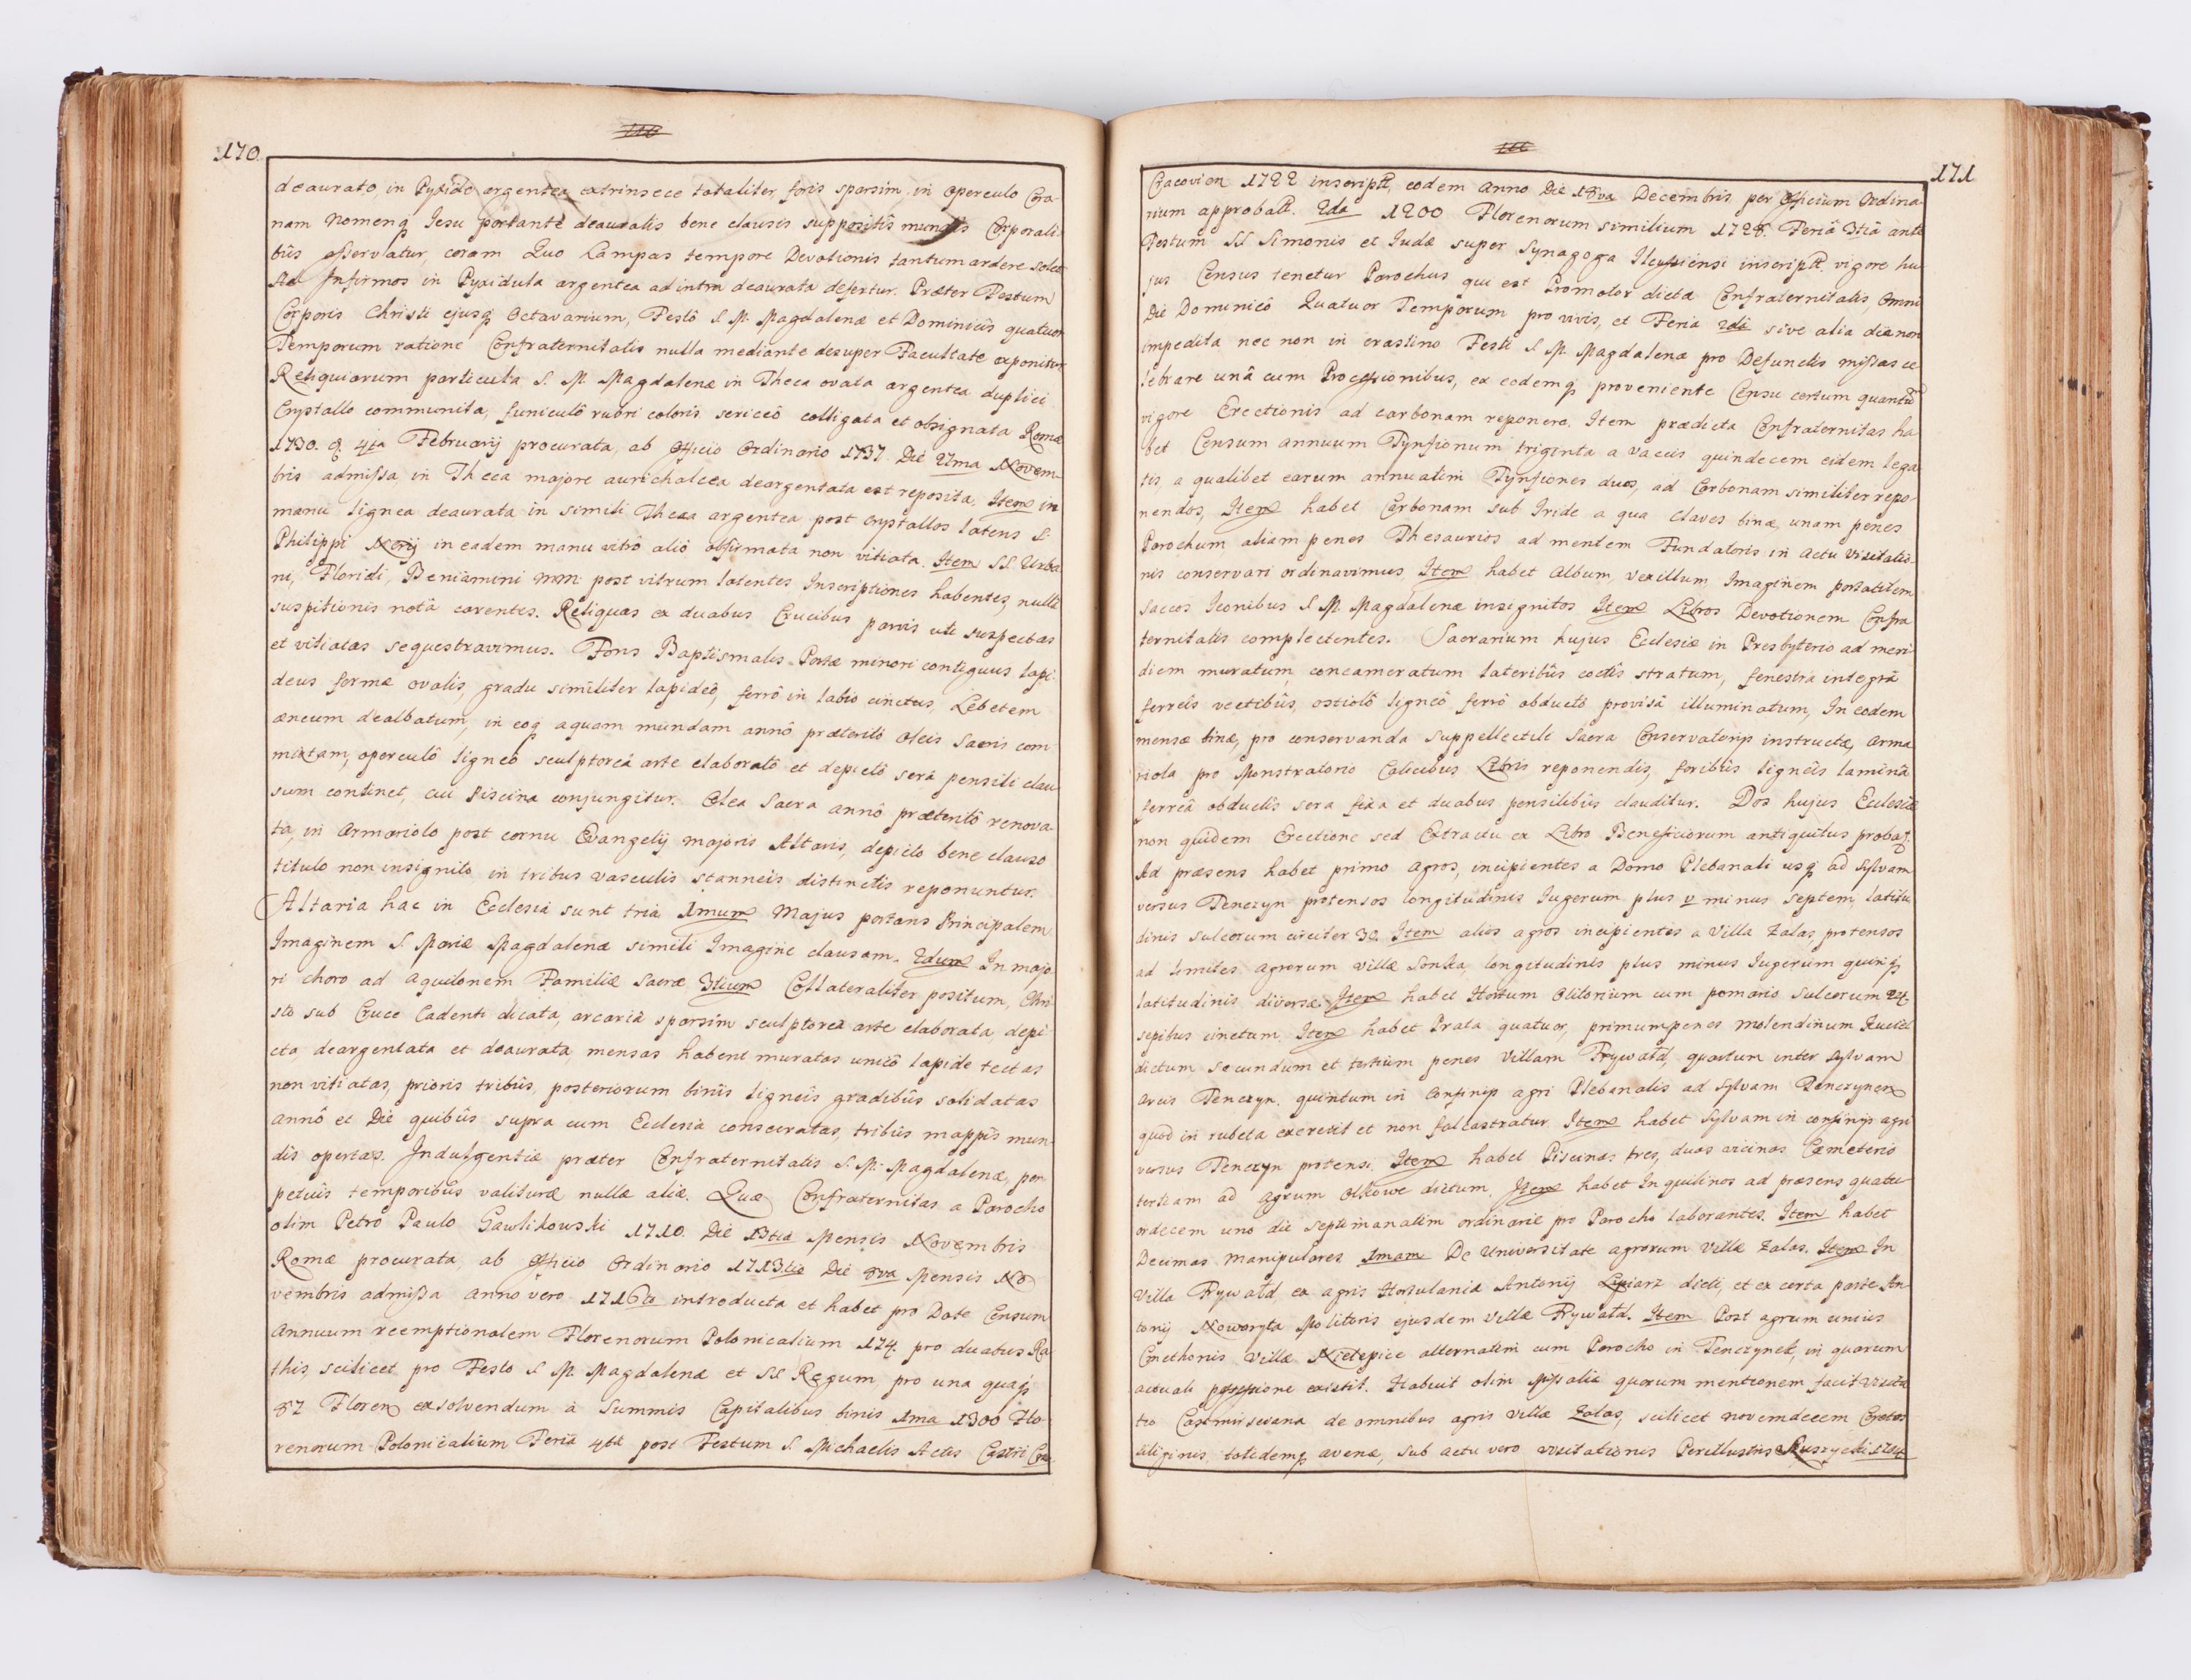 170
deaurato, in Pyxide argentea extrinsece totaliter, foris sparsim, in operculo Coro-
nam Nomenq Iesu portante deauratis bene clausis suppositis mundis Corporali-
bûs asservatur, coram Quo Lampas tempore Devotionis tantum ardere solet
Ad Infirmos in Pyxidula argentea ad intra deaurata defertur. Præter Festum
Corporis Christi ejusq Octavarium, Festô S. M. Magdalenæ et Dominicîs quatuor
Temporum ratione Confraternitatis nulla mediante desuper Facultate exponitur
Reliquiarum particula S. M. Magdalenæ in Theca ovata argentea duplici
Crystallo communita, funiculô rubri coloris sericeô colligata et obsignata Romæ
1730. d. 4ta Februarij procurata, ab Officio Ordinario 1737. Die 27ma Novem-
bris admissa in Theca majore aurichalcea deargentata est reposita. Item in
manu lignea deaurata in simili Theca argentea post Crystallos latens S.
Philippi Nerij in eadem manu vitrô aliô obfirmata non vitiata. Item SS. Urba
ni, Floridi, Beniamini MM. post vitrum latentes Inscriptiones habentes nullâ
suspitionis notâ carentes. Reliquas ex duabus Crucibus parvis uti suspectas
et vitiatas sequestravimus. Fons Baptismalis Portæ minori contiguus lapi-
deus formæ ovalis, gradu similiter lapideô, ferrô in labio cinctus, Lebetem
æneum dealbatum, in eoq aquam mundam annô præteritô Oleis Sacris com
mixtam, operculô ligneô sculptoreâ arte elaboratô et depictô serâ pensili clau
sum continet, cui Piscina conjungitur. Olea Sacra annô præteritô renova-
ta, in Armariolo post cornu Evangelij majoris Altaris, depicto bene clauso
titulo non insignito in tribus vasculis stanneis distinctis reponuntur.
Altaria hac in Ecclesia sunt tria 1mum Majus portans Principalem
Imaginem S. Mariæ Magdalenæ simili Imagine clausam. 2dum In majo
ri choro ad Aquilonem Familiæ Sacræ 3tium Collateraliter positum, Chri
sto sub Cruce Cadenti dicata, arcaria sparsim sculptorea arte elaborata, depi-
cta, deargentata et deaurata, mensas habent muratas unicô lapide tectas
non vitiatas, prioris tribûs, posteriorum binîs ligneîs gradibûs solidatas
annô et Die quibûs supra cum Ecclesia consecratas, tribûs mappîs mun-
dis opertas. Indulgentiæ præter Confraternitatis S. M. Magdalenæ, per-
petuîs temporibûs valituræ nullæ aliæ. Quæ Confraternitas a Parocho
olim Petrô Paulo Gawlikowski 1710. Die 13tia Mensis Novembris
Romæ procurata, ab Officio Ordinario 1713tio Die 8va Mensis No
vembris admissa Anno vero 1716to introducta et habet pro Dote Censum
Annuum reemptionalem Florenorum Polonicalium 174. pro duabus Ra
this, scilicet pro Festo S. M. Magdalenæ et SS. Regum, pro una quaq
87 Floren exsolvendum â Summis Capitalibus binis 1ma 1300 Flo-
renorum Polonicalium Feriâ 4tâ post Festum S. Michaelis Actis Castri Cra
171
Cracovien 1722 inscript, eodem Anno Die 18va Decembris per Officium Ordina-
rium approbatt. 2da 1200 Florenorum similium 1728. Feriâ 3tiâ ante
Festum SS Simonis et Judæ super Synagoga Ilcussiensi inscriptt. vigore hu
jus Census tenetur Parochus qui est Promotor dictæ Confraternitatis, Omni
Die Dominicô Quatuor Temporum pro vivis, et Feria 2dâ sive alia die non
impedita nec non in crastino Festi S. M. Magdalenæ pro Defunctis missas ce
lebrare unâ cum Processionibus, ex eodemq proveniente Censu certum quantû
vigore Erectionis ad carbonam reponere. Item prædicta Confraternitas ha
bet Censum annuum Tynfionum triginta a vaccis quindecem eidem lega
tis, a qualibet earum annuatim Tynfiones duos, ad Carbonam similiter repo-
nendos, Item habet Carbonam sub Iride a qua claves binæ, unam penes
Parochum aliam penes Thesaurios ad mentem Fundatoris in Actu Visitatio-
nis conservari ordinavimus, Item habet Album, vexillum Imaginem portatilem
Saccos Iconibus S. M. Magdalenæ insignitos Item Libros Devotionem Confra
ternitatis complectentes. Sacrarium hujus Ecclesiæ in Presbyterio ad meri-
diem muratum, concameratum lateribûs coctîs stratum, fenestrâ integrâ
ferreîs vectibûs, ostiolô ligneô ferrô obductô provisâ illuminatum, In eodem
mensæ binæ, pro conservanda Suppellectili Sacra Conservatorijs instructæ, Arma
riola pro Monstratorio Calicibus Libris reponendis, foribûs ligneîs laminâ
ferreâ obductîs sera fixa et duabus pensilibûs clauditur. Dos hujus Ecclesiæ
non quidem Erectione sed Extractu ex Libro Beneficiorum antiquitus probat.
Ad præsens habet primo Agros, incipientes a Domo Plebanali usq ad Sylvam
versus Tenczyn protensos longitudinis Iugerum plus v minus septem, latitu
dinis sulcorum circiter 30. Item alios agros incipientes a Villa Zalas, protensos
ad limites Agrorum Villæ Sonka, longitudinis plus minus Iugerum quinq
latitudinis diversæ, Item habet Hortum Olitorium cum pomario sulcorum 24.
sepibus cinctum, Item habet Prata quatuor, primum penes Molendinum
dictum secundum et tertium penes Villam Frywałd, quartum inter Sylvam
Arcis Tenczyn. quintum in Confinijs agri Plebanalis ad Sylvam Tenczynen
quod in rubeta excrevit et non falcastratur. Item habet Sylvam in confinijs agri
versus Tenczyn protensi. Item habet Piscinas tres, duas vicinas Cæmeterio
tertiam ad Agrum Olkowe dictum. Item habet Inquilinos ad præsens quatu
ordecem uno die septimanatim ordinarie pro Parocho laborantes. Item habet
Decimas Manipulares 1mam De Universitate agrorum Villæ Zalas. Item In
Villa Frywałd, ex agris Hortulania Antonij dicti, et ex certa parte An-
tonij Noworyta Molitoris ejusdem Villæ Frywałd. Item Post agrum unius
Cmethonis Villæ alternatim cum Parocho in Tenczynek, in quarum
actuali possessione existit. Habuit olim Missalia quorum mentionem facit Visita
tio de omnibus agris Villæ Zalas, scilicet novemdecem Coretos
siliginis, totidemq avenæ, sub actu vero Visitationis Perillustris